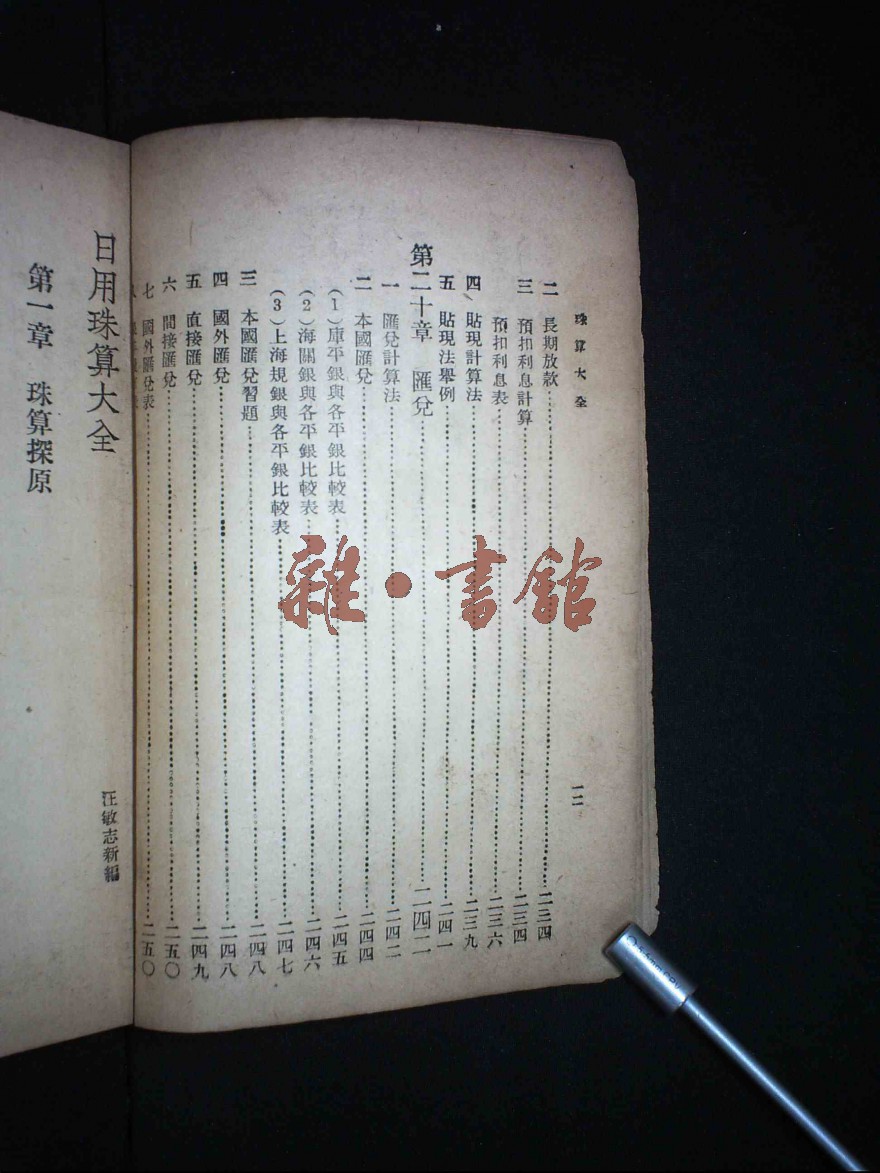 珠算大全
一二
二 長期放款……二三四
三 預扣利息計算……二三四
預扣利息表……二三六
四 貼現計算法……二三九
五 貼現法舉例……二四一
第二十章 匯兌……二四二
一 匯兌計算法……二四二
二 本國匯兌……二四四
(1)庫平銀與各平銀比較表……二四五
(2)海關銀與各平銀比較表……二四六
(3)上海規銀與各平銀比較表……二四七
三 本國匯兌習題……二四八
四 國外匯兌……二四八
五 直接匯兌……二四九
六 間接匯兌……二五〇
七 國外匯兌表……二五〇
日用珠算大全
汪敏志新編
第一章 珠算探原
雜·書館